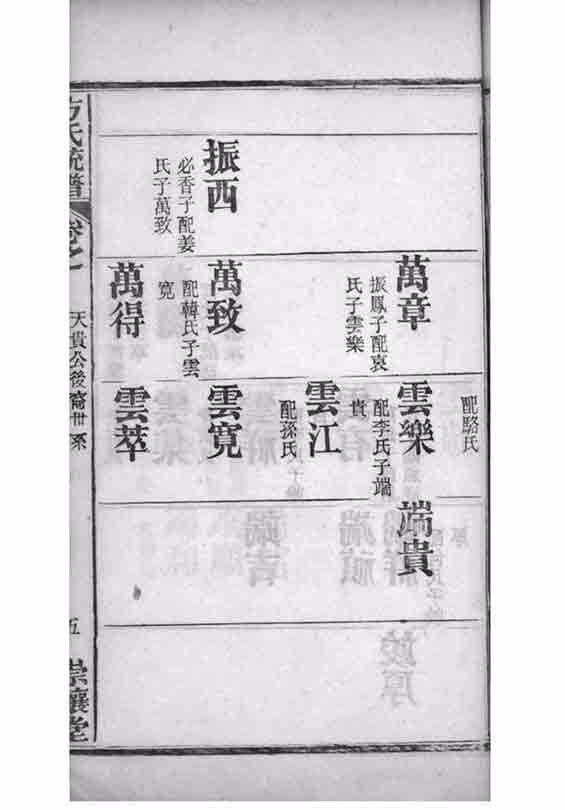 振西
必香子配姜
氏子萬致
萬章
振鳳子配袁
氏子雲樂
萬致
配韓氏子雲
寬
萬得
配駱氏
雲樂
配李氏子端
貴
雲江
配孫氏
雲寬
雲萃
端貴
方氏統譜
天貴公後裔世系
五
崇讓堂